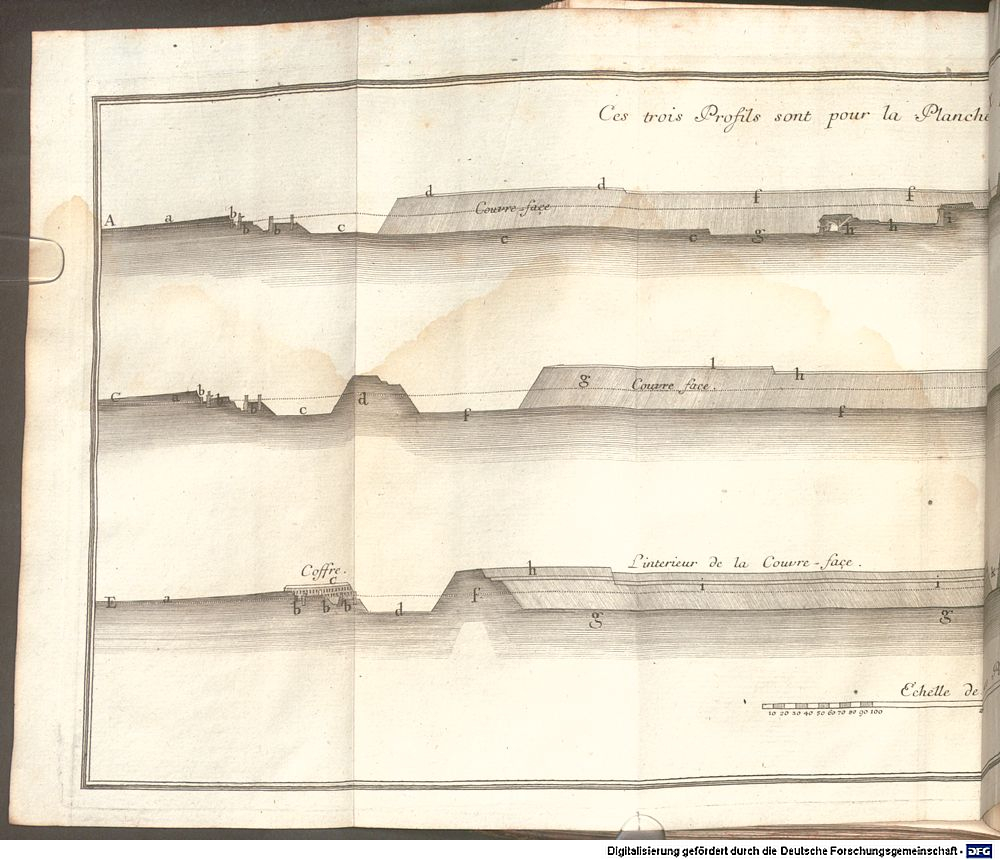 Ces trois Profils sont pour la Planche
d d f f
A a b b b c Couvre-façe h h i
c c g
l
C a b b b c d g Couvre façe. h
f f
Coffre. L'interieur de la Couvre-façe.
c h
E a b b b d f i i
g g
Echelle de
10 20 30 40 50 60 70 80 90 100
Digitalisierung gefördert durch die Deutsche Forschungsgemeinschaft - DFG